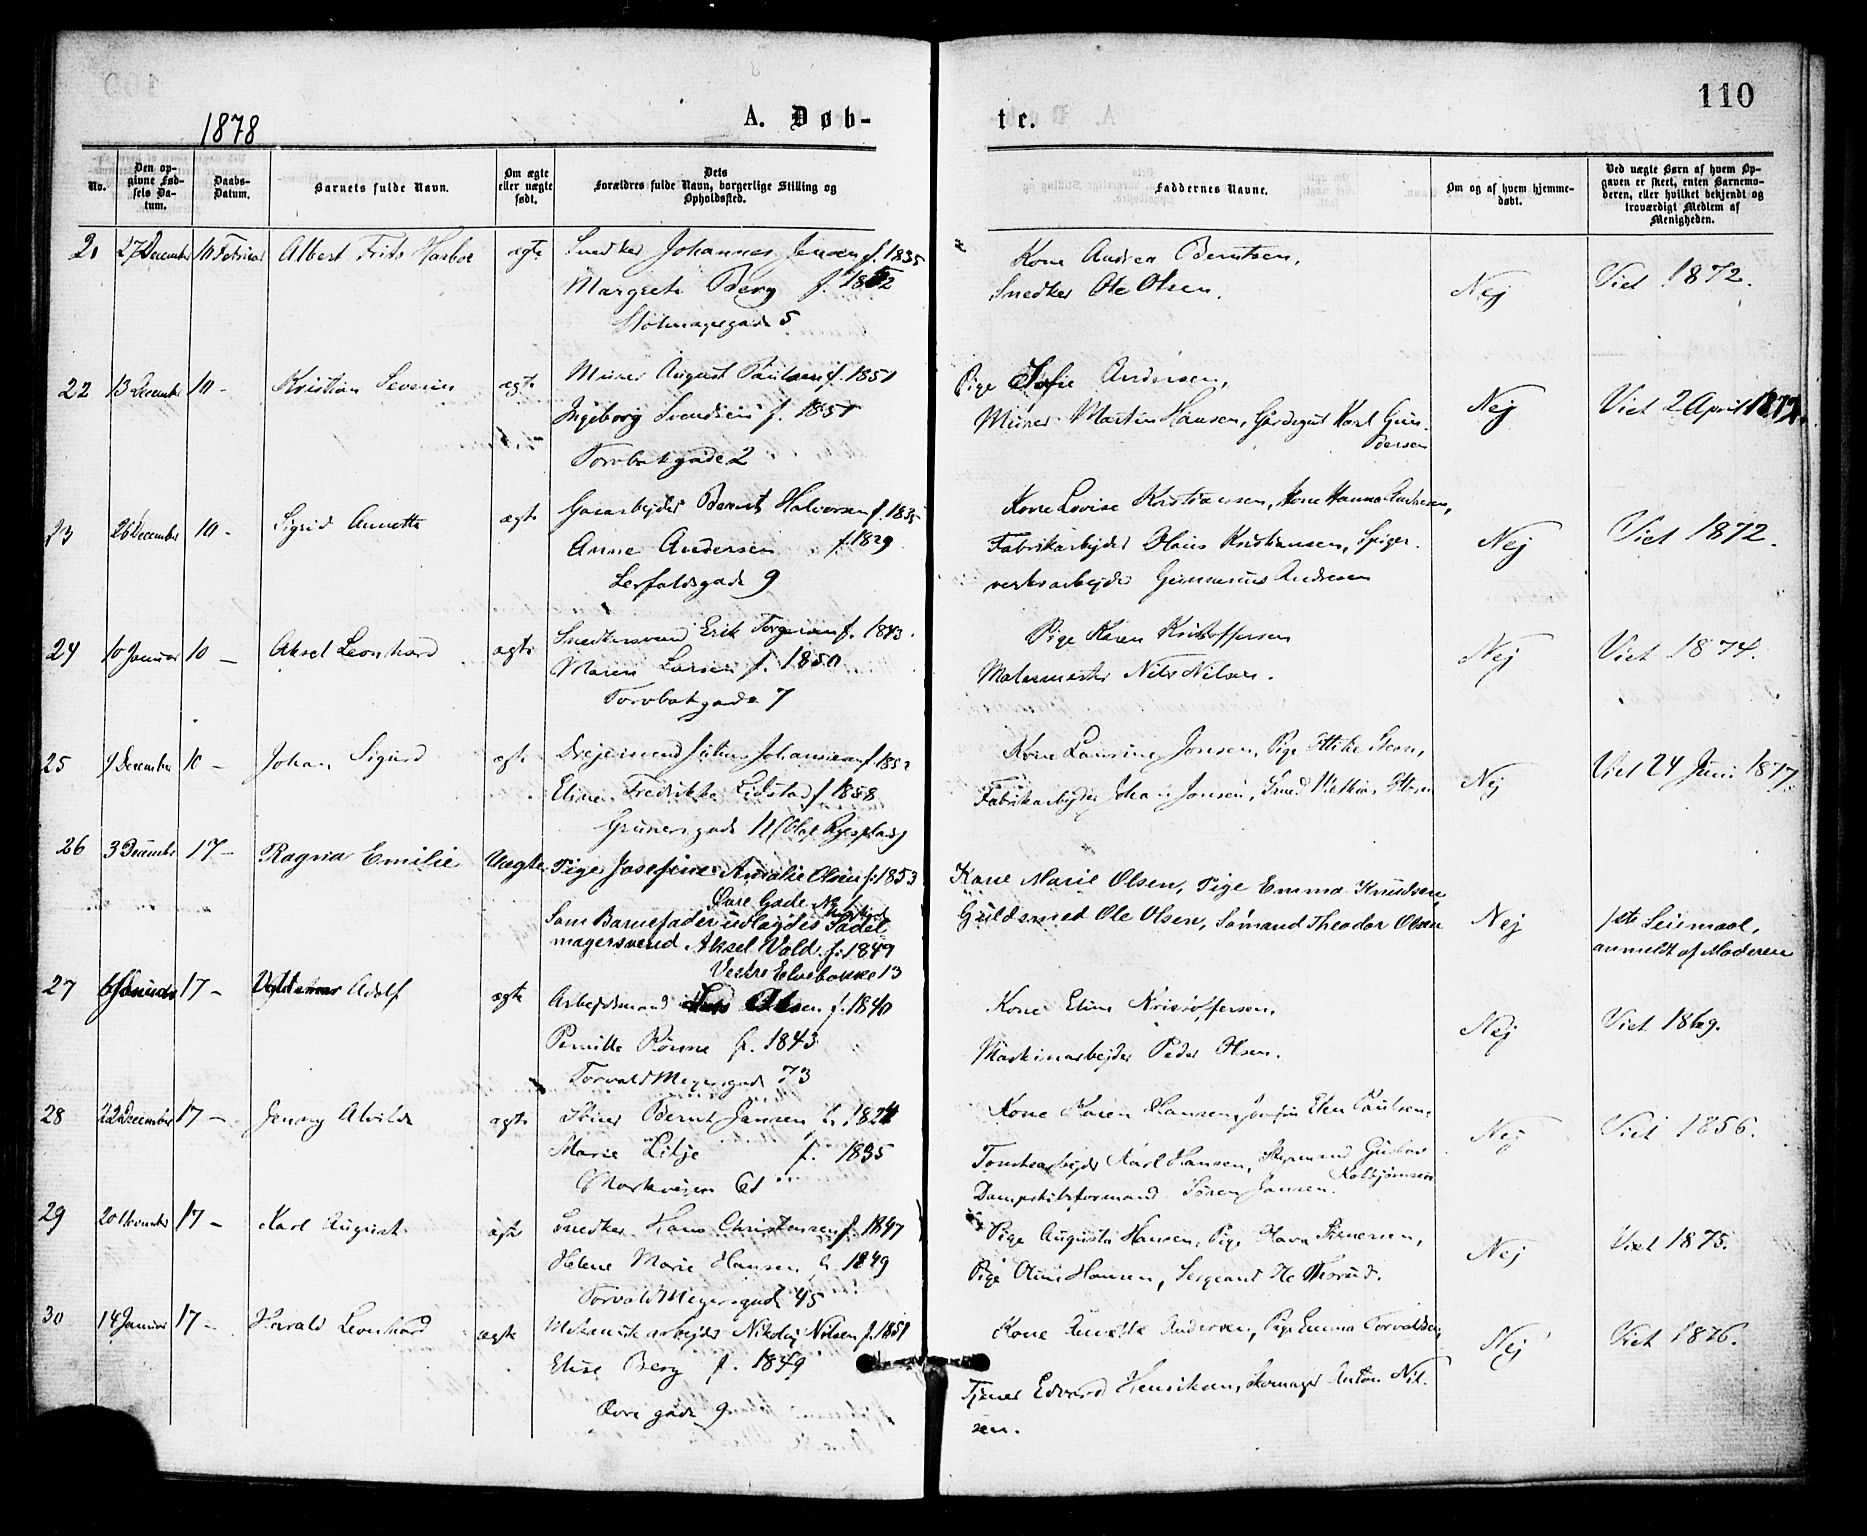 110
1878
A. Døb-
te.
No.
Den op-
givne Fød-
sels Da-
tum.
Daabs-
Datum.
Barnets fulde Navn.
Om ægte
eller uægte
født.
Dets
Forældres fulde Navn, borgerlige Stilling og
Opholdssted.
Faddernes Navne.
Om og af hvem hjemme-
døbt.
Ved uægte Børn af hvem Op-
gaven er skeet, enten Barnemo-
deren, eller hvilket bekjendt og
troværdigt Medlem af
Menigheden.
21 27 December 10 Februar Albert Frits Harboe ægte Snedker Johannes Jensen f. 1835
Margrete Berg f. 1852
5
Kone Andrea Berntsen,
Snedker Ole Olsen.
Nej
Viet 1872.
22 13 December 10 - Kristian Severin ægte Murer August Paulsen f. 1851
Ingeborg Svendsen f. 1851
Torvbakgade 2
Pige Sofie Andersen,
Murer Martin Hansen, Gårdsgut Karl Gun-
dersen
Nej
Viet 2 April
23 26 December 10 - Sigrid Annette ægte Gasarbejder Bernt Halvorsen f. 1835
Anne Andersen f. 1829
Lerfaldsgade 9
Kone Lovise Kristiansen, Kone Hanna Andresen,
Fabrikarbejder Hans Kristiansen, Spiger-
verksarbejder Gunnerius Andresen
Nej
Viet 1872.
24 10 Januar 10 - Aksel Leonhard ægte Snedkersvend Erik Torgersen f. 1843.
Maren Larsen f. 1850
Torvbakgade 7
Pige Karen Kristoffersen
Malermester Nils Nilsen.
Nej
Viet 1874.
25 9 December 10 - Johan Sigurd ægte Drejersvend Julius Johansen f. 1852
Eline Fredrikke Lidstad f. 1858
Grünersgade 11 (Olaf Ryesplads)
Kone Laurine Jonsen, Pige
Fabrikarbejder Johan Jonsen, Smed
Nej
Viet 24 Juni 1877.
26 3 December 17 - Ragna Emilie Uægte Pige Josefine Amalie Olsen f. 1853
Øvre Gade No 1
Som Barnefader udlagdes Sadel
magersvend Aksel Wold f. 1849
Vestre Elvebakke 13
Kone Marie Olsen, Pige Emma Knudsen,
Guldsmed Ole Olsen, Sømand Theodor Olsen
Nej
1ste Leiermaal,
anmeldt af Moderen
27 6 Januar 17 - Valdemar Adolf ægte Arbejdsmand Lars Olsen f. 1840
Pernille Rønne f. 1843
Torvald Meyersgade 73
Kone Eline Kristoffersen,
Maskinarbejder Peder Olsen.
Nej
Viet 1869.
28 22 December 17 - Jenny Alvilde ægte Bernt Jansen f. 1824
Marie Lilje f. 1835
Markveien 61
Kone Karen Hansen, Jomfru Elen Paulsen,
Tomtearbejder Karl Hansen, Styrmand Gustav
Kolbjørnsen
Dampskibsformand Søren Jansen.
Nej
Viet 1856.
29 20 November 17 - Karl August ægte Snedker Hans Christensen f. 1847
Helene Marie Hansen f. 1849
Torvald Meyersgade 45
Pige Augusta Hansen, Pige
Pige Oline Hansen, Sergeant
Nej
Viet 1875.
30 14 Januar 17 - Harald Leonhard ægte Mekanisk arbejder Nikolaj Nilsen f. 1851
Elise Berg f. 1849
Øvre gade 9
Kone Annette Andersen, Pige Emma Torvaldsen,
Tjener Edvard Henriksen, Skomager Anton Nil-
sen.
Nej
Viet 1876.